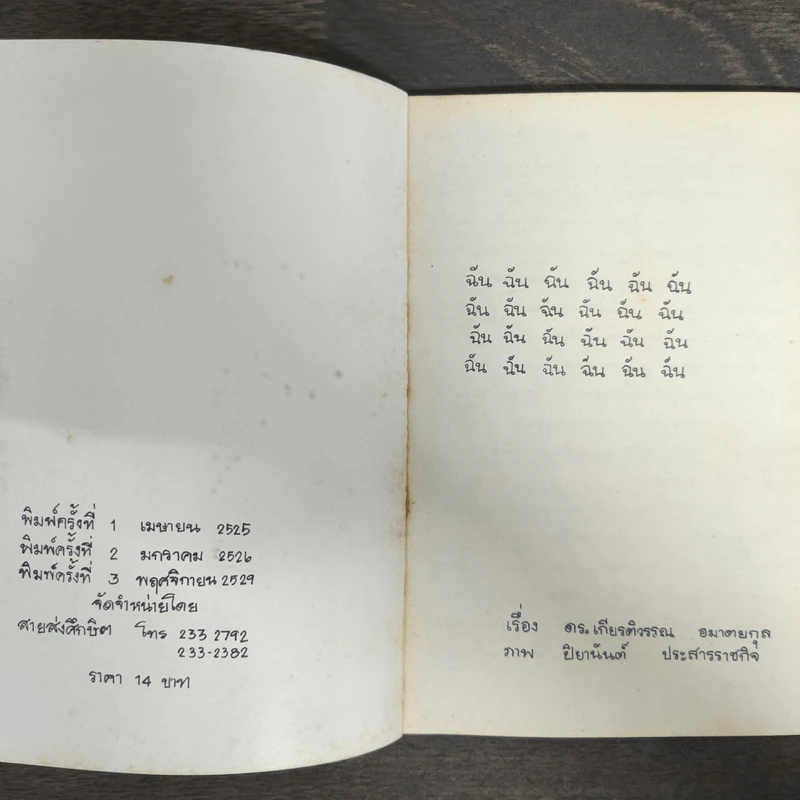 พิมพ์ครั้งที่ 1 เมษายน 2525
พิมพ์ครั้งที่ 2 มกราคม 2526
พิมพ์ครั้งที่ 3 พฤศจิกายน 2529
จัดจำหน่ายโดย
สายส่งศึกษิต โทร 233 2792
233-2382
ราคา 14 บาท
ฉัน ฉัน ฉัน ฉัน ฉัน ฉัน
ฉัน ฉัน ฉัน ฉัน ฉัน ฉัน
ฉัน ฉัน ฉัน ฉัน ฉัน ฉัน
ฉัน ฉัน ฉัน ฉัน ฉัน ฉัน
เรื่อง ดร.เกียรติวรรณ อมาตยกุล
ภาพ ปิยานันต์ ประสารราชกิจ